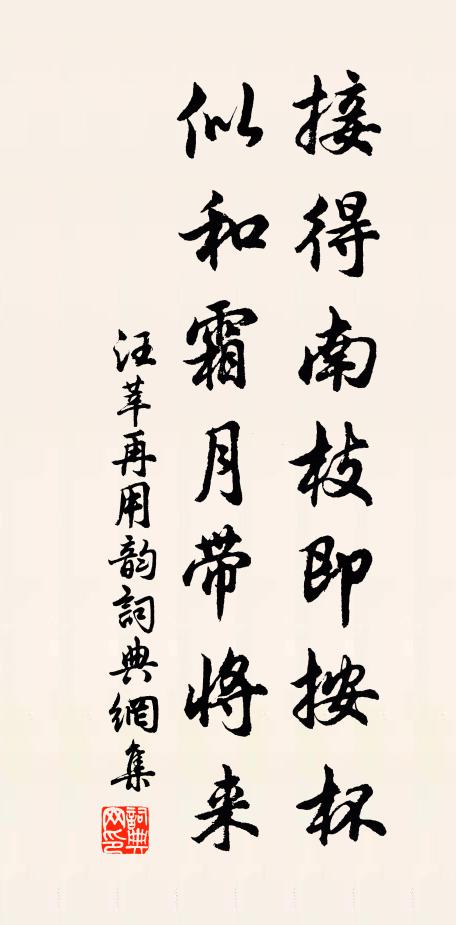 接得南枝即按杯
似和霜月带将来
汪莘再用韵詞典網集
詞典网印